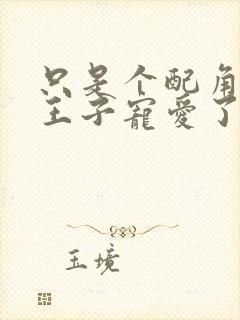 只是个配角
王子寵愛了
玉境